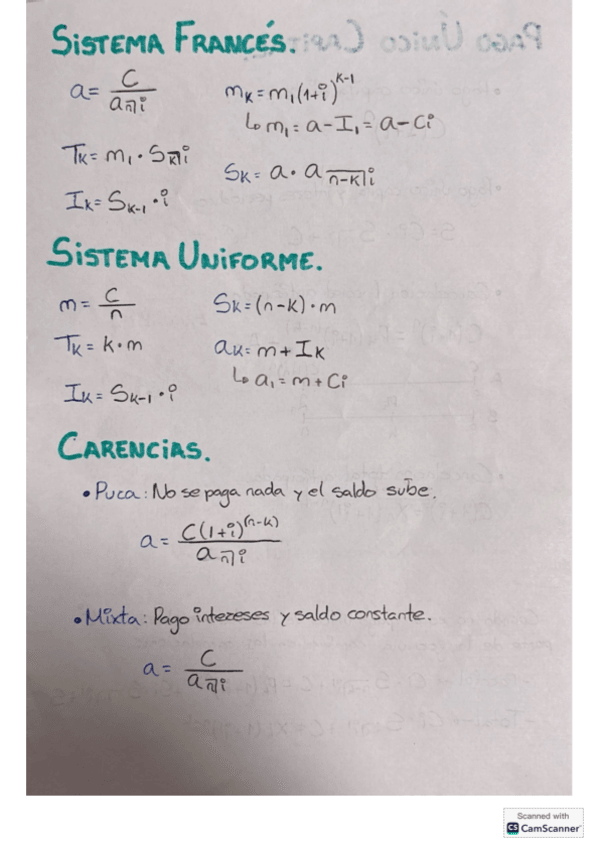 SISTEMA FRANCÉS.
a = C / a n̅|i
mK = m1(1+i)^K-1
↳ m1 = a - I1 = a - Ci
TK = m1 · S K̅|i
SK = a · a n-K|i
IK = SK-1 · i
SISTEMA UNIFORME.
m = C / n
SK = (n-K) · m
TK = k · m
aK = m + IK
↳ a1 = m + Ci
IK = SK-1 · i
CARENCIAS.
• Puca: No se paga nada y el saldo sube.
a = C(1+i)^(n-k) / a n̅|i
• Mixta: Pago intereses y saldo constante.
a = C / a n̅|i
Scanned with
CS CamScanner